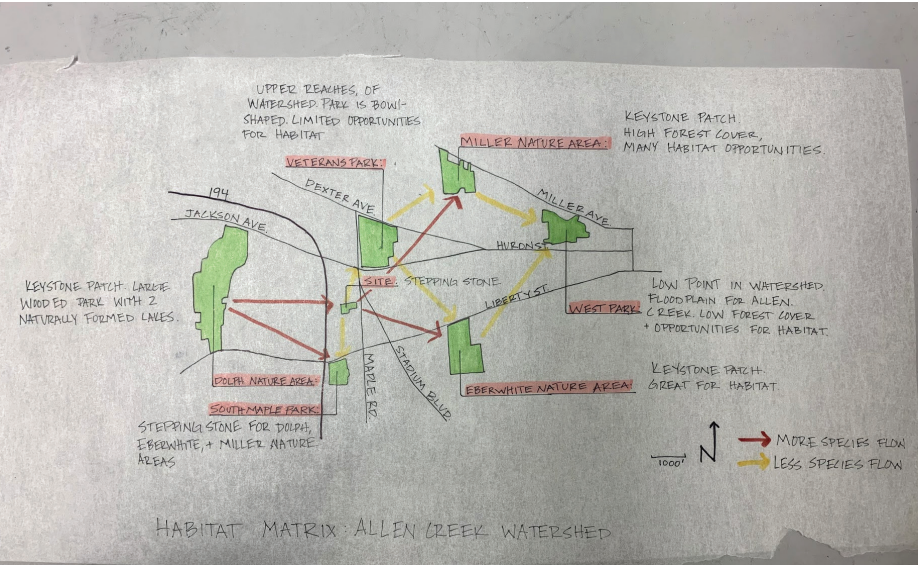 UPPER REACHES, OF
WATERSHED. PARK IS BOWL-
SHAPED. LIMITED OPPORTUNITIES
FOR HABITAT
KEYSTONE PATCH.
HIGH FOREST COVER,
MANY HABITAT OPPORTUNITIES.
MILLER NATURE AREA:
VETERANS PARK:
DEXTER AVE.
MILLER AVE.
194
JACKSON AVE.
HURON ST.
KEYSTONE PATCH. LARGE
WOODED PARK WITH 2
NATURALLY FORMED LAKES.
SITE: STEPPING STONE.
LIBERTY ST.
WEST PARK:
LOW POINT IN WATERSHED.
FLOODPLAIN FOR ALLEN
CREEK. LOW FOREST COVER
+ OPPORTUNITIES FOR HABITAT.
MAPLE RD.
STADIUM BLVD
DOLPH NATURE AREA:
SOUTH MAPLE PARK:
STEPPING STONE FOR DOLPH,
EBERWHITE, + MILLER NATURE
AREAS
EBERWHITE NATURE AREA:
KEYSTONE PATCH.
GREAT FOR HABITAT
1000'
N
MORE SPECIES FLOW
LESS SPECIES FLOW
HABITAT MATRIX: ALLEN CREEK WATERSHED